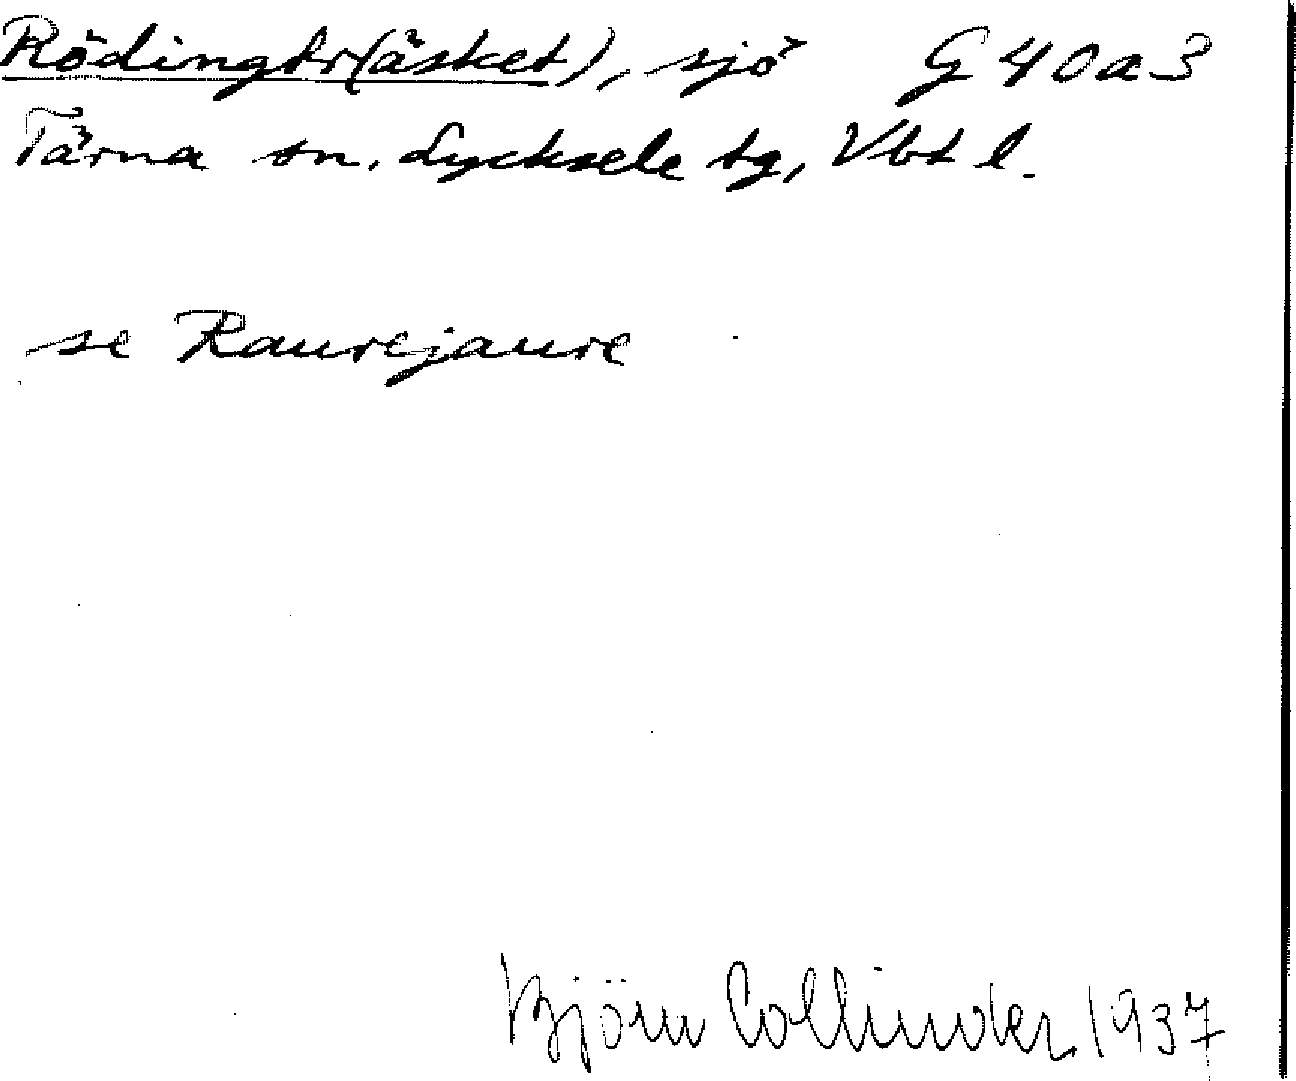 Rödingtr(äsket), sjö G 40 a 3
Tärna sn. Lycksele tg, Vbt l.
se Raurejaure
Björn Collinder 1937